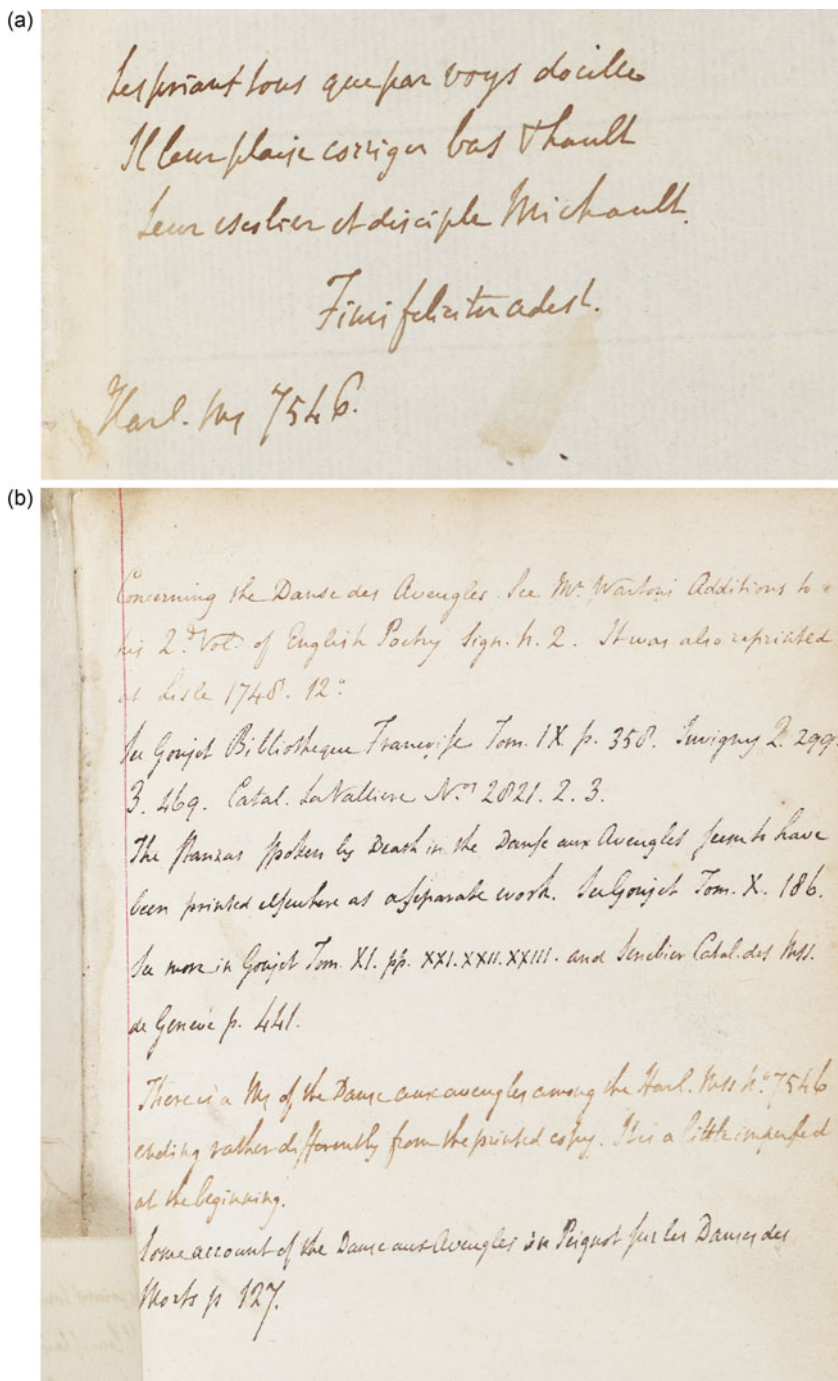 (a)
Les priant tous que par voys docille
Il leur plaise corriger bas & hault
Leur escolier et disciple Michault.
Finis feliciter adest.
Harl. Ms 7546.
(b)
Concerning the Danse des Aveugles. See Mr. Warton's Additions to
his 2.d Vol. of English Poetry Sign. h. 2. It was also reprinted
at Lisle 1748. 12o.
See Goujet Bibliotheque Francoise Tom. IX p. 358. Juvigny 2. 299.
3. 469. Catal. La Valliere Nos 2821. 2. 3.
The stanzas spoken by Death in the Danse aux Aveugles seem to have
been printed elsewhere as a separate work. See Goujet Tom. X. 186.
See more in Goujet Tom. XI. pp. XXI. XXII. XXIII. and Senebier Catal. des Mss.
de Geneve p. 441.
There is a Ms of the Danse aux aveugles among the Harl. Mss No. 7546
ending rather differently from the printed copy. It is a little imperfect
at the beginning.
Some account of the Danse aux Aveugles in Peignot sur les Danses des
Morts p 127.